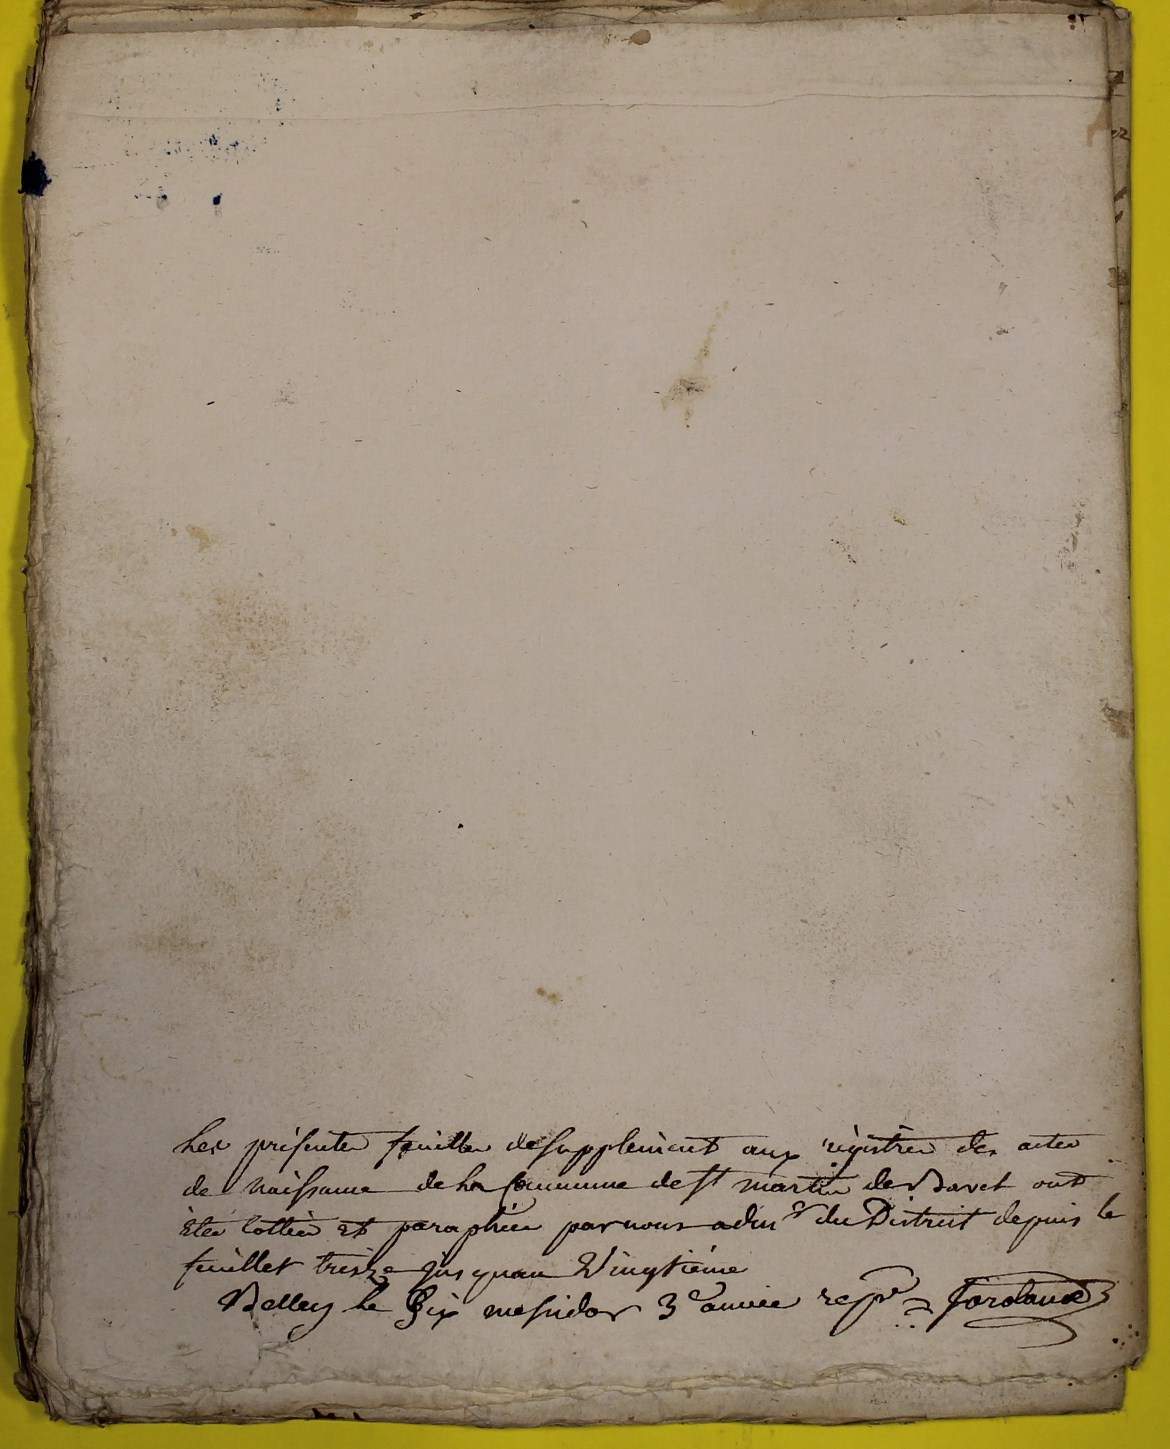 Les présentes feuilles de supplement aux régistres des actes
de Naissance de la Commune de St martin de Bavel ont
étée cottées et paraphées par nous admr du District depuis le
feuillet treize jusquau Vingtiéme
Belley le Six messidor 3e année repe